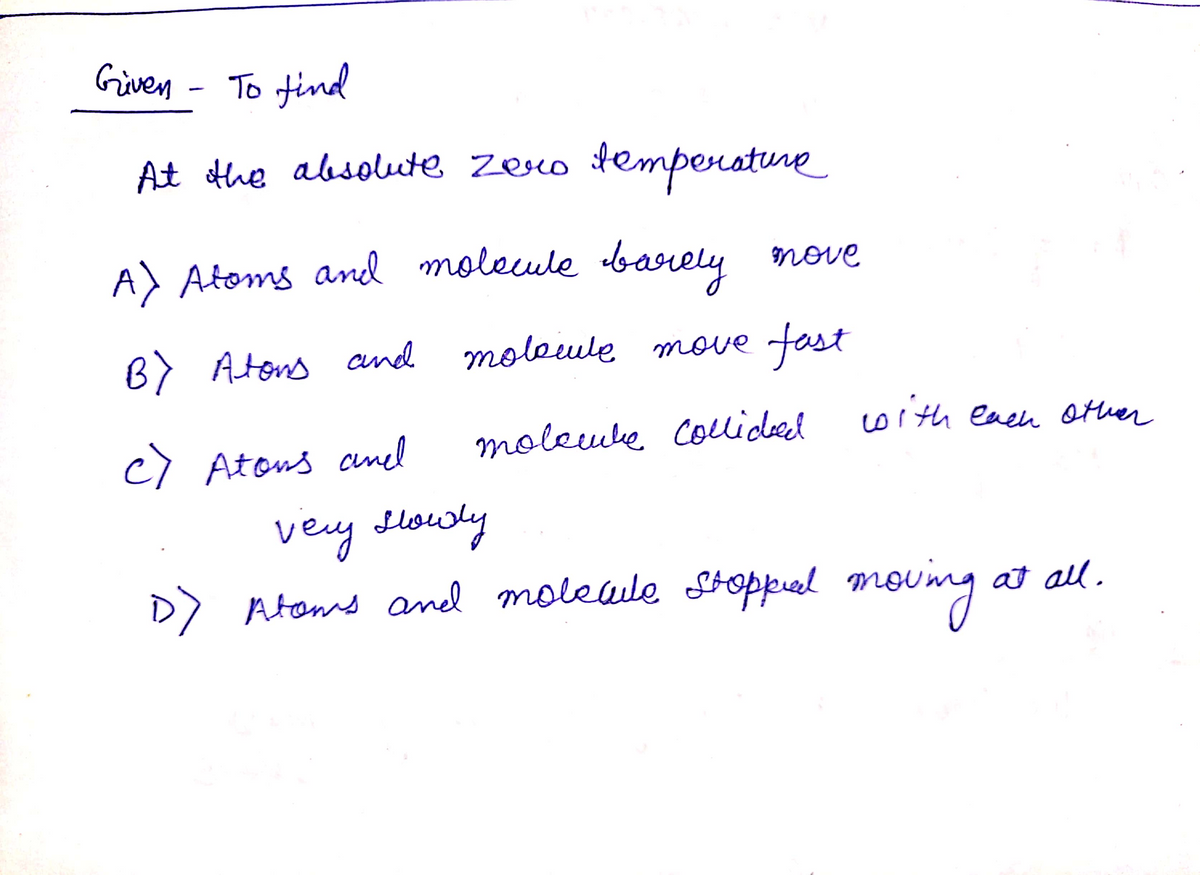 Given - To find
At the absolute zero temperature
A) Atoms and molecule barely move
B) Atoms and molecule move fast
C) Atoms and molecule Collided with each other
very slowly
D) Atoms and molecule stopped moving at all.